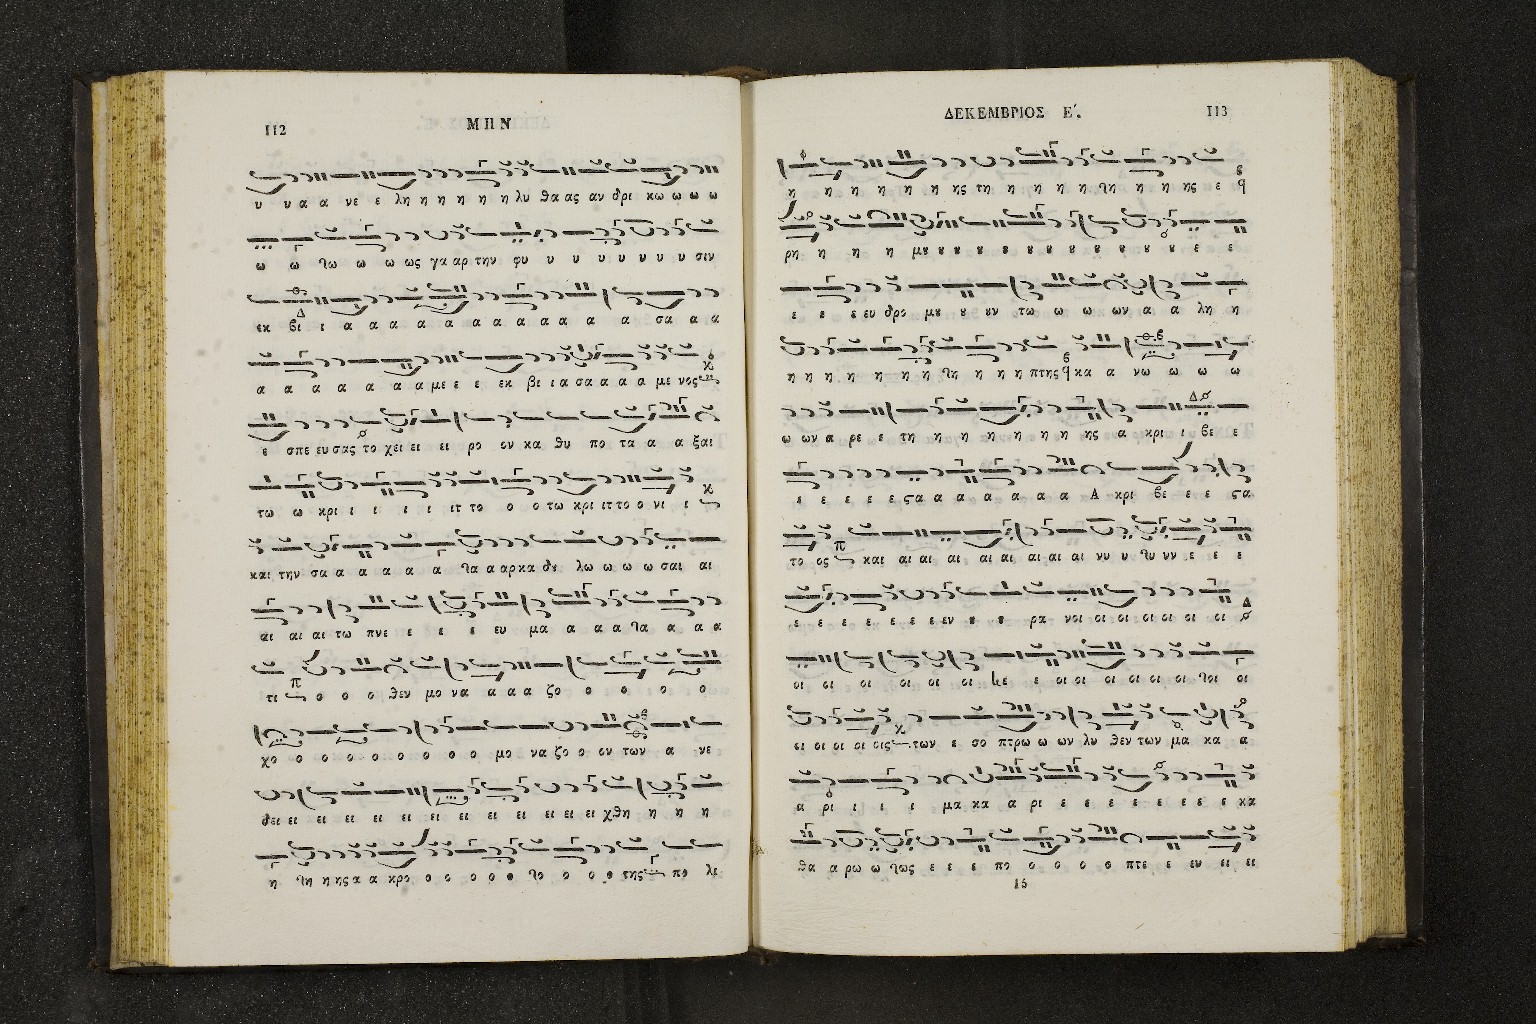 112
ΜΗΝ
υ υ α α νε ε λη η η η η η λυ θα ας αν δρι κω ω ω ω
ω ω τω ω ω ως γα αρ την φυ υ υ υ υ υ υ υ σιν
εκ βι ι α α α α α α α α α α α α σα α α
α α α α α α α με ε ε εκ βι ι α σα α α α με νος
ε σπε ευ σας το χει ει ει ρο ον κα θυ πο τα α α ξαι
τω ω κρι ι ι ι ι ιτ το ο ο τω κρι ιτ το ο νι ι
και την σα α α α α α τα α αρ κα δου λω ω ω ω σαι αι
αι αι αι τω πνε ε ε ε ευ μα α α α τα α α α
τι ο ο ο θεν μο να α α α ζο ο ο ο ο
χο ο ο ο ο ο ο ο ο μο να ζο ο ον των α νε
δει ει ει ει ει ει ει ει ει ει ει ει χθη η η η
η τη η ης α α κρο ο ο ο ο ο το ο ο ο της πο λε
ΔΕΚΕΜΒΡΙΟΣ Ε΄.
113
η η η η η η η ης τη η η η η τη η η ης ε
ρη η η η μȣ ȣ ȣ ȣ ȣ ȣ ȣ ȣ ȣ ȣ ȣ ȣ ε ε
ε ε ε ευ δρο μȣ ȣ ȣν τω ω ω ων α α λη η
η η η η η η η τη η η η πτης κα α νω ω ω ω
ω ων α ρε ε τη η η η η η η η ης α κρι ι βε ε
ε ε ε ε ε ϛα α α α α α α α Α κρι βε ε ε ϛα
το ος και αι αι αι αι αι αι αι αι νυ υ τυ υν ε ε ε
ε ε ε ε ε ε ε εν ȣ ȣ ρα νοι οι οι οι οι οι οι
οι οι οι οι οι οι κε ε οι οι οι οι οι οι τοι οι
οι οι οι οι οις των ε σο πτρω ω ων λυ θεν των μα κα α
α ρι ι ι ι μα κα α ρι ε ε ε ε ε ε ε ε κα
θα α ρω ω τως ε ε ε πο ο ο ο ο πτε ε εν ει ει
15